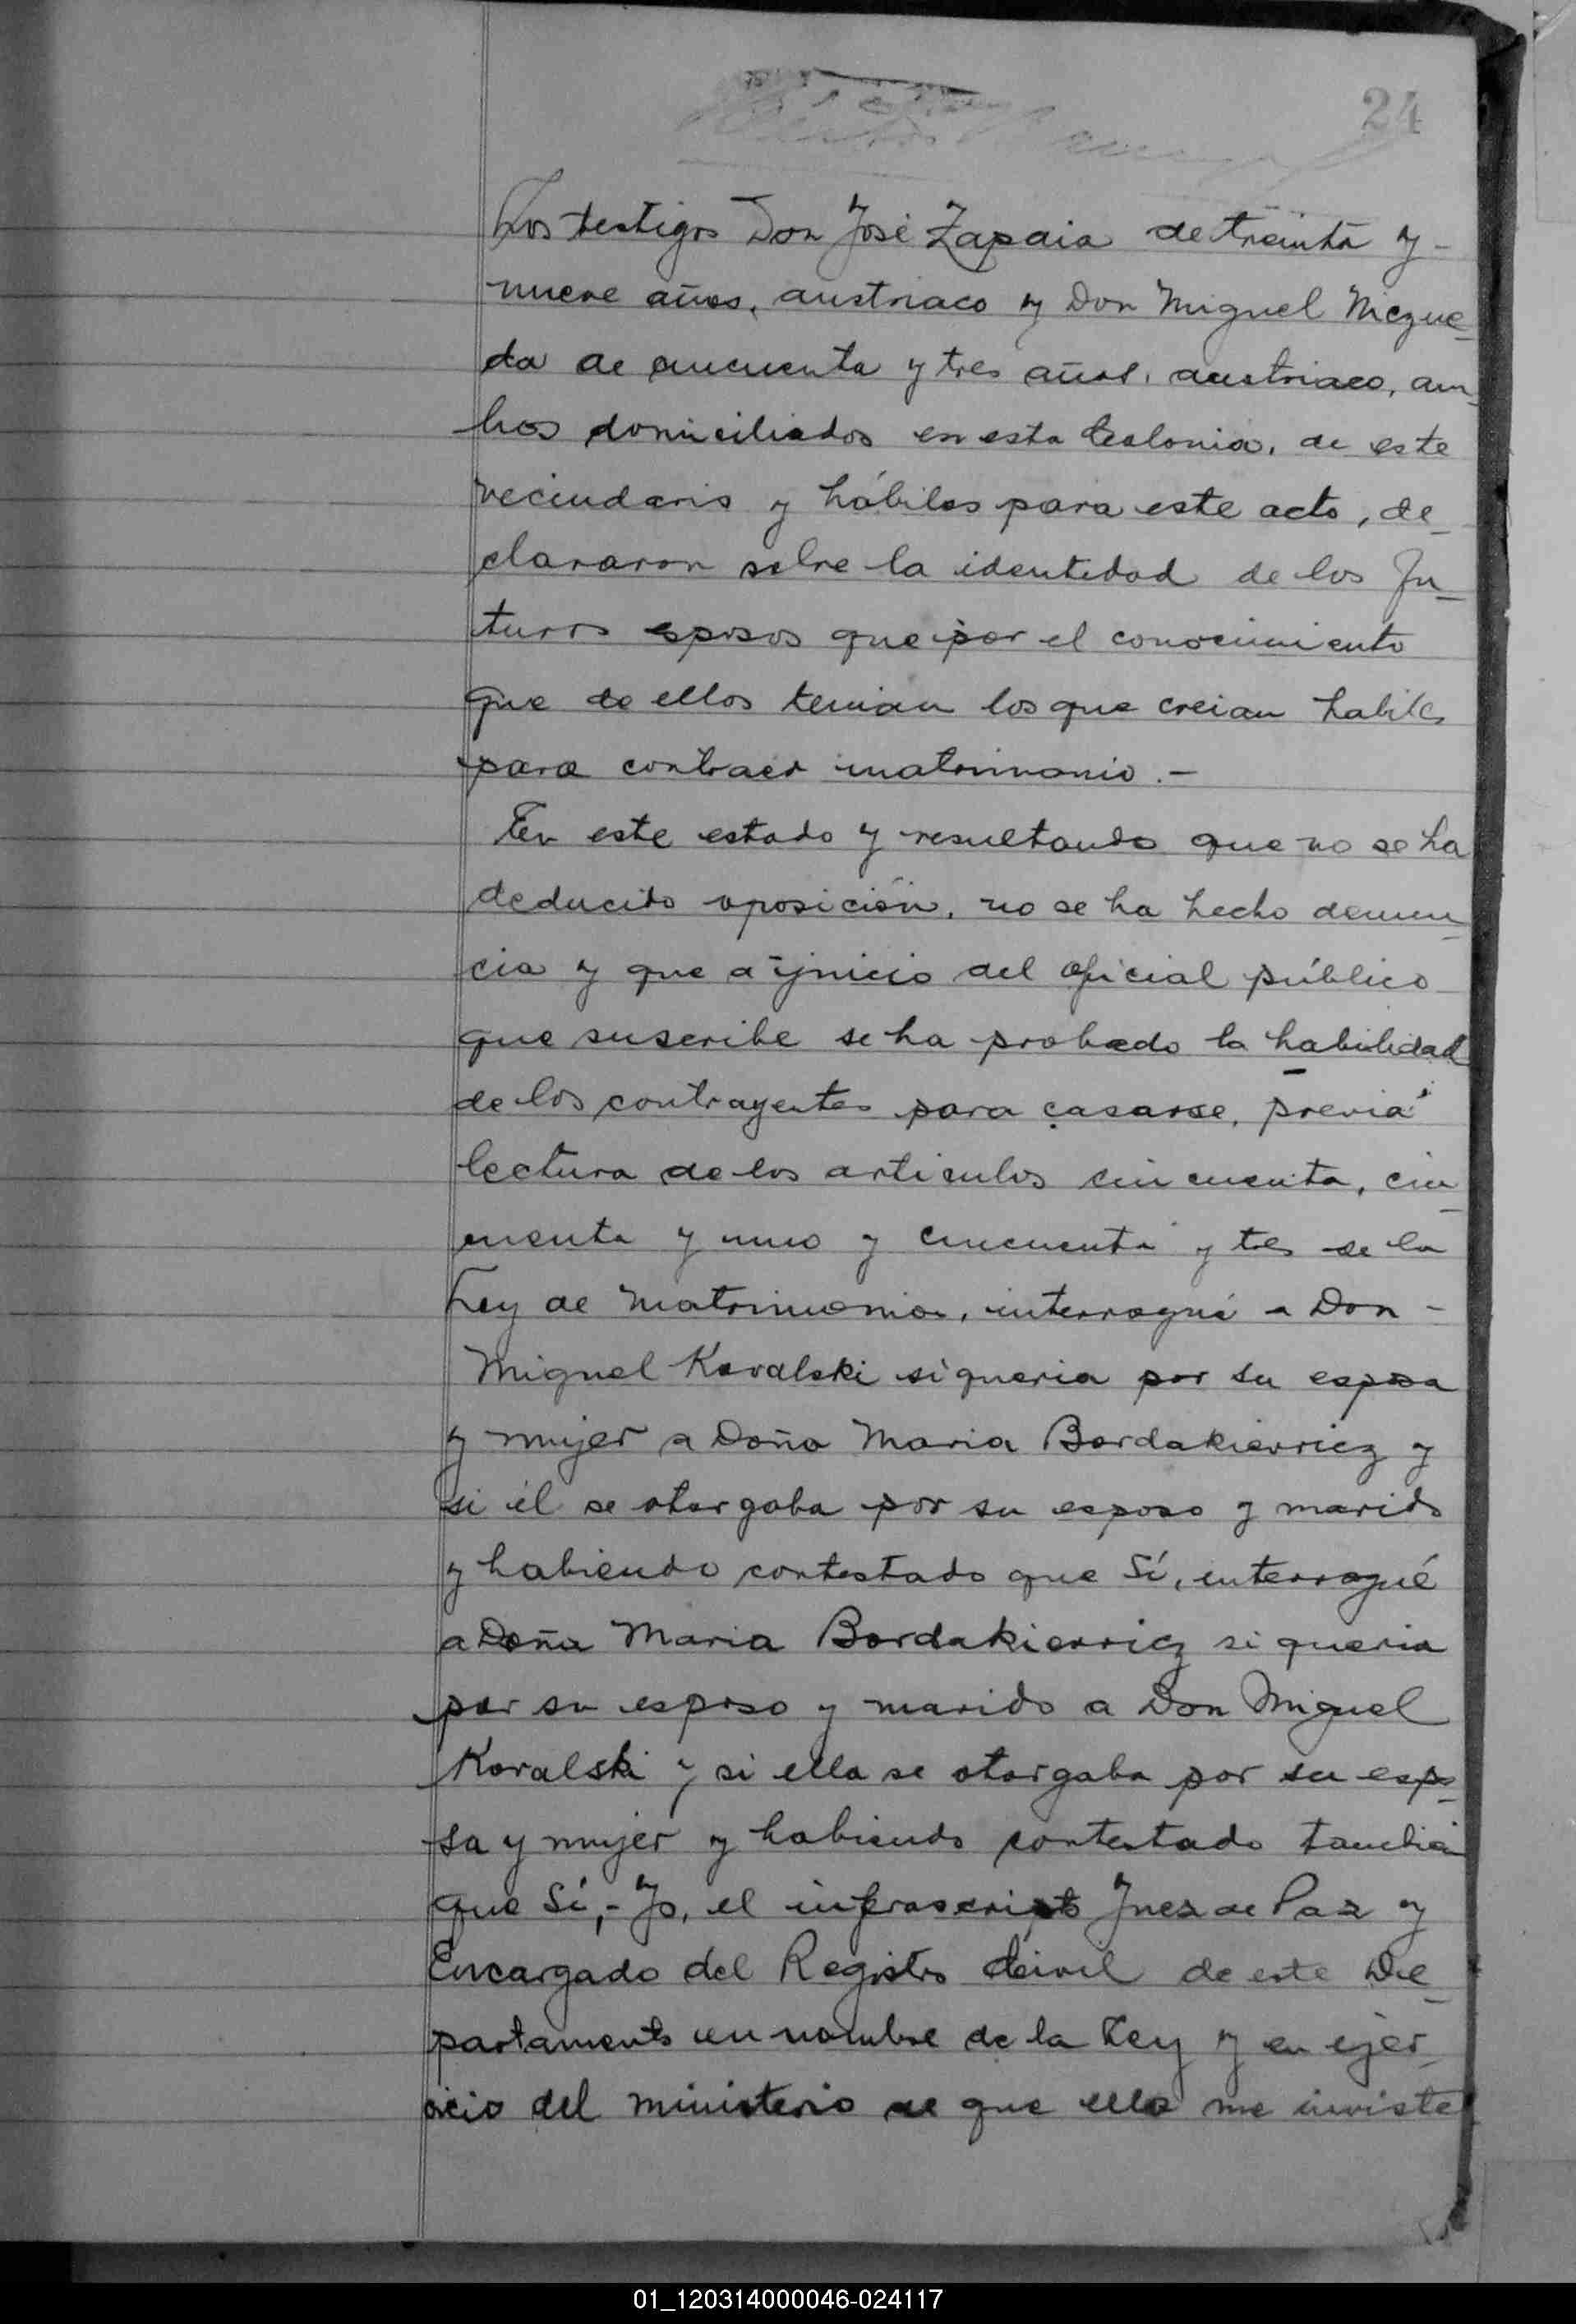 24
Los testigos Don José Zapaia de treinta y-
nueve años, austriaco y Don Miguel Niezue-
da de cincuenta y tres años, austriaco, am-
bos domiciliados en esta Colonia, de este
vecindario y hábiles para este acto, de-
clararon sobre la identidad de los fu-
turos esposos que por el conocimiento
que de ellos tenian los que creian habiles
para contraer matrimonio.-
En este estado y resultando que no se ha
deducido oposición, no se ha hecho denun-
cia y que a juicio del oficial público
que suscribe se ha probado la habilidad
de los contrayentes para casarse, previa
lectura de los articulos cincuenta, cin-
cuenta y uno y cincuenta y tres de la
Ley de Matrimonio, interrogué a Don -
Miguel Kovalski si queria por su esposa
y mujer a Doña Maria Bordakievricz y
si él se otorgaba por su esposo y marido
y habiendo contestado que Sí, interrogué
a Doña Maria Bordakievricz si queria
por su esposo y marido a Don Miguel
Kovalski y si ella se otorgaba por su espo-
sa y mujer y habiendo contestado tambien
que Sí,- Yo, el infrascripto Juez de Paz y
Encargado del Registro Civil de este De-
partamento en nombre de la Ley y en ejer-
cicio del ministerio de que ella me inviste
01_120314000046-024117